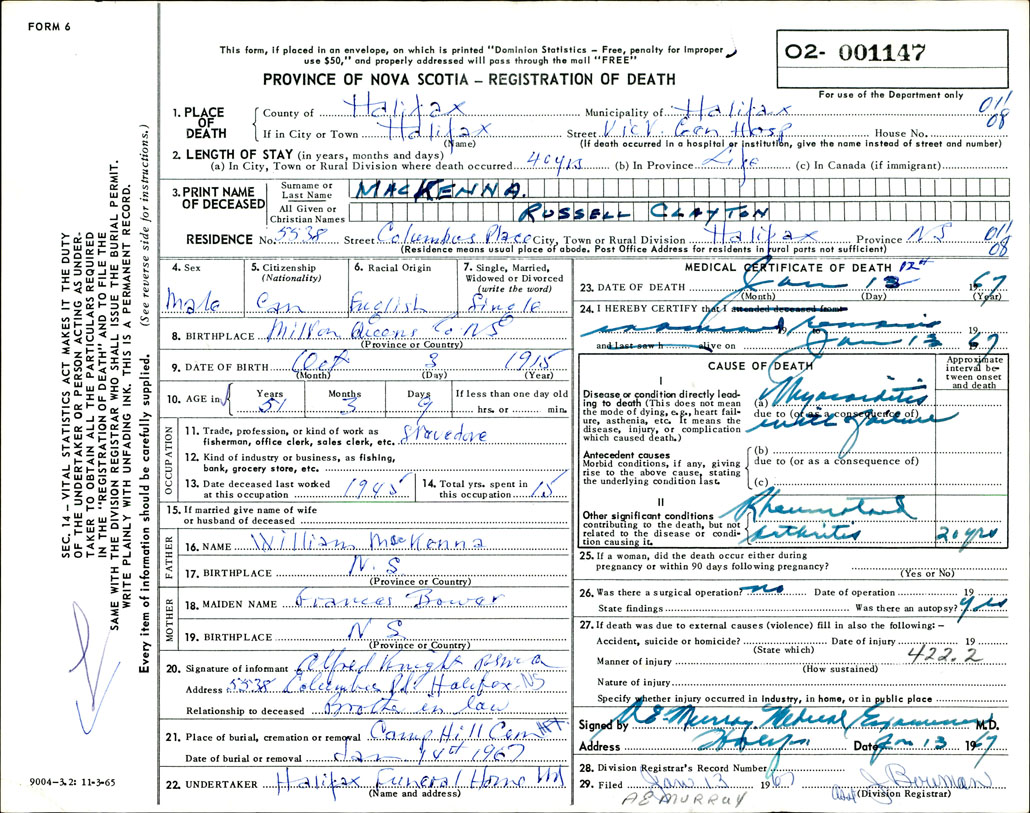 FORM 6
This form, if placed in an envelope, on which is printed "Dominion Statistics – Free, penalty for improper
use $50," and properly addressed will pass through the mail "FREE"
PROVINCE OF NOVA SCOTIA – REGISTRATION OF DEATH
O2- 001147
For use of the Department only
SEC. 14 – VITAL STATISTICS ACT MAKES IT THE DUTY
OF THE UNDERTAKER OR PERSON ACTING AS UNDER-
TAKER TO OBTAIN ALL THE PARTICULARS REQUIRED
IN THE "REGISTRATION OF DEATH" AND TO FILE THE
SAME WITH THE DIVISION REGISTRAR WHO SHALL ISSUE THE BURIAL PERMIT.
WRITE PLAINLY WITH UNFADING INK. THIS IS A PERMANENT RECORD.
Every item of information should be carefully supplied. (See reverse side for instructions.)
1. PLACE OF DEATH
County of Halifax Municipality of Halifax 011
If in City or Town Halifax Street Vict. Gen Hosp House No. 08
(Name) (If death occurred in a hospital or institution, give the name instead of street and number)
2. LENGTH OF STAY (in years, months and days)
(a) In City, Town or Rural Division where death occurred 40 yrs (b) In Province Life (c) In Canada (if immigrant)
3. PRINT NAME OF DECEASED
Surname or Last Name MACKENNA.
All Given or Christian Names RUSSELL CLAYTON
RESIDENCE No. 5538 Street Columbus Place City, Town or Rural Division Halifax Province NS 011
(Residence means usual place of abode. Post Office Address for residents in rural parts not sufficient) 08
4. Sex Male
5. Citizenship (Nationality) Can
6. Racial Origin English
7. Single, Married, Widowed or Divorced (write the word) Single
8. BIRTHPLACE Milton Queens Co NS
(Province or Country)
9. DATE OF BIRTH Oct 3 1915
(Month) (Day) (Year)
10. AGE in Years 51 Months 3 Days 9 If less than one day old hrs. or min.
OCCUPATION
11. Trade, profession, or kind of work as
fisherman, office clerk, sales clerk, etc. Stevedore
12. Kind of industry or business, as fishing,
bank, grocery store, etc.
13. Date deceased last worked
at this occupation 1945
14. Total yrs. spent in
this occupation 15
15. If married give name of wife
or husband of deceased
FATHER
16. NAME William MacKenna
17. BIRTHPLACE N.S
(Province or Country)
MOTHER
18. MAIDEN NAME Frances Bower
19. BIRTHPLACE N S
(Province or Country)
20. Signature of informant Alfred Knight
Address 5538 Columbus Pl. Halifax NS
Relationship to deceased Brother in law
21. Place of burial, cremation or removal Camp Hill Cem Hfx
Date of burial or removal Jan 14th 1967
22. UNDERTAKER Halifax Funeral Home
(Name and address)
MEDICAL CERTIFICATE OF DEATH 12th
23. DATE OF DEATH Jan 12 1967
(Month) (Day) (Year)
24. I HEREBY CERTIFY that I attended deceased from
examined remains 19 19
and last saw h alive on Jan 13 1967
CAUSE OF DEATH
Approximate interval between onset and death
I
Disease or condition directly leading to death (This does not mean the mode of dying, e.g., heart failure, asthenia, etc. It means the disease, injury, or complication which caused death.)
(a) Myocarditis
due to (or as a consequence of)
with failure
Antecedent causes
Morbid conditions, if any, giving rise to the above cause, stating the underlying condition last.
(b)
due to (or as a consequence of)
(c)
II
Other significant conditions contributing to the death, but not related to the disease or condition causing it.
Rheumatoid
arthritis 20 yrs
25. If a woman, did the death occur either during
pregnancy or within 90 days following pregnancy?
(Yes or No)
26. Was there a surgical operation? no Date of operation 19
State findings Was there an autopsy? yes
27. If death was due to external causes (violence) fill in also the following: –
Accident, suicide or homicide? Date of injury 19
(State which) 422.2
Manner of injury
(How sustained)
Nature of injury
Specify whether injury occurred in industry, in home, or in public place
Signed by A E Murray Medical Examiner M.D.
Address Halifax Date Jan 13 1967
28. Division Registrar's Record Number
29. Filed Jan 13 1967 J Bowman
A E MURRAY (Division Registrar)
9004-3.2: 11-3-65